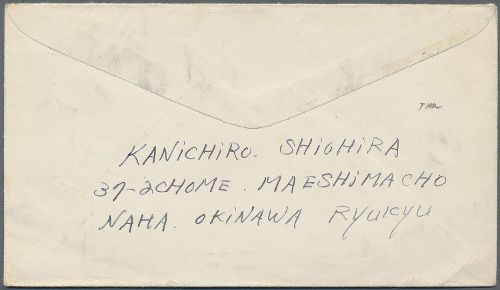 KANICHIRO. SHIOHIRA
37-2CHOME. MAESHIMACHO
NAHA. OKINAWA RYUKYU